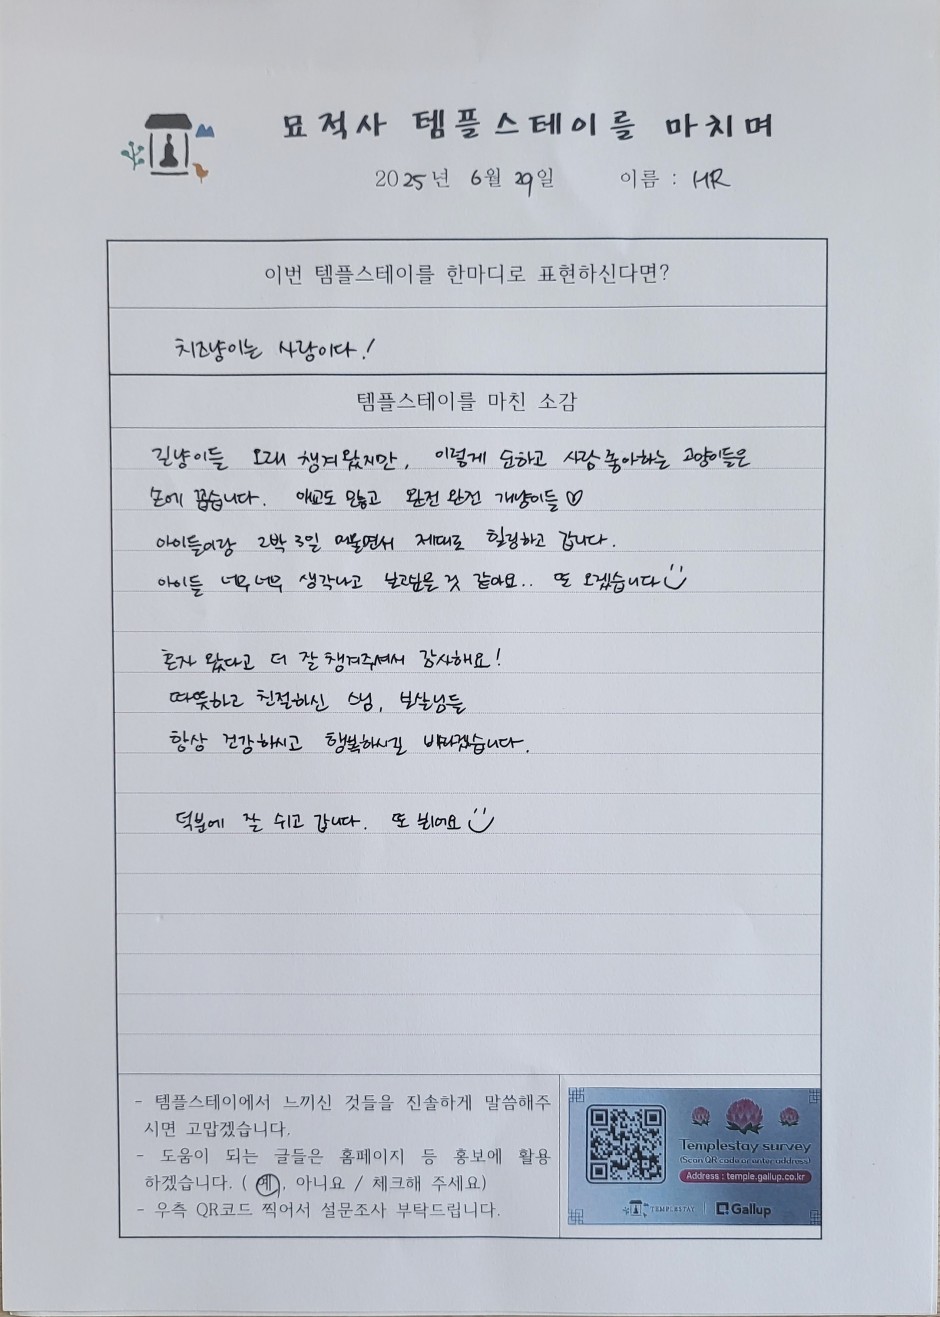 묘적사 템플스테이를 마치며
2025년 6월 29일 이름 : HR
이번 템플스테이를 한마디로 표현하신다면?
치즈냥이는 사랑이다!
템플스테이를 마친 소감
길냥이들 오래 챙겨왔지만, 이렇게 순하고 사람 좋아하는 고양이들은
손에 꼽습니다. 애교도 많고 완전 완전 개냥이들♡
아이들이랑 2박 3일 머물면서 제대로 힐링하고 갑니다.
아이들 너무너무 생각나고 보고싶을 것 같아요.. 또 오겠습니다
혼자 왔다고 더 잘 챙겨주셔서 감사해요!
따뜻하고 친절하신 스님, 보살님들
항상 건강하시고 행복하시길 바라겠습니다.
덕분에 잘 쉬고 갑니다. 또 뵈어요
- 템플스테이에서 느끼신 것들을 진솔하게 말씀해주
시면 고맙겠습니다.
- 도움이 되는 글들은 홈페이지 등 홍보에 활용
하겠습니다. ( 예, 아니요 / 체크해 주세요)
- 우측 QR코드 찍어서 설문조사 부탁드립니다.
Templestay survey
(Scan QR code or enter address)
Address : temple.gallup.co.kr
TEMPLESTAY | Gallup